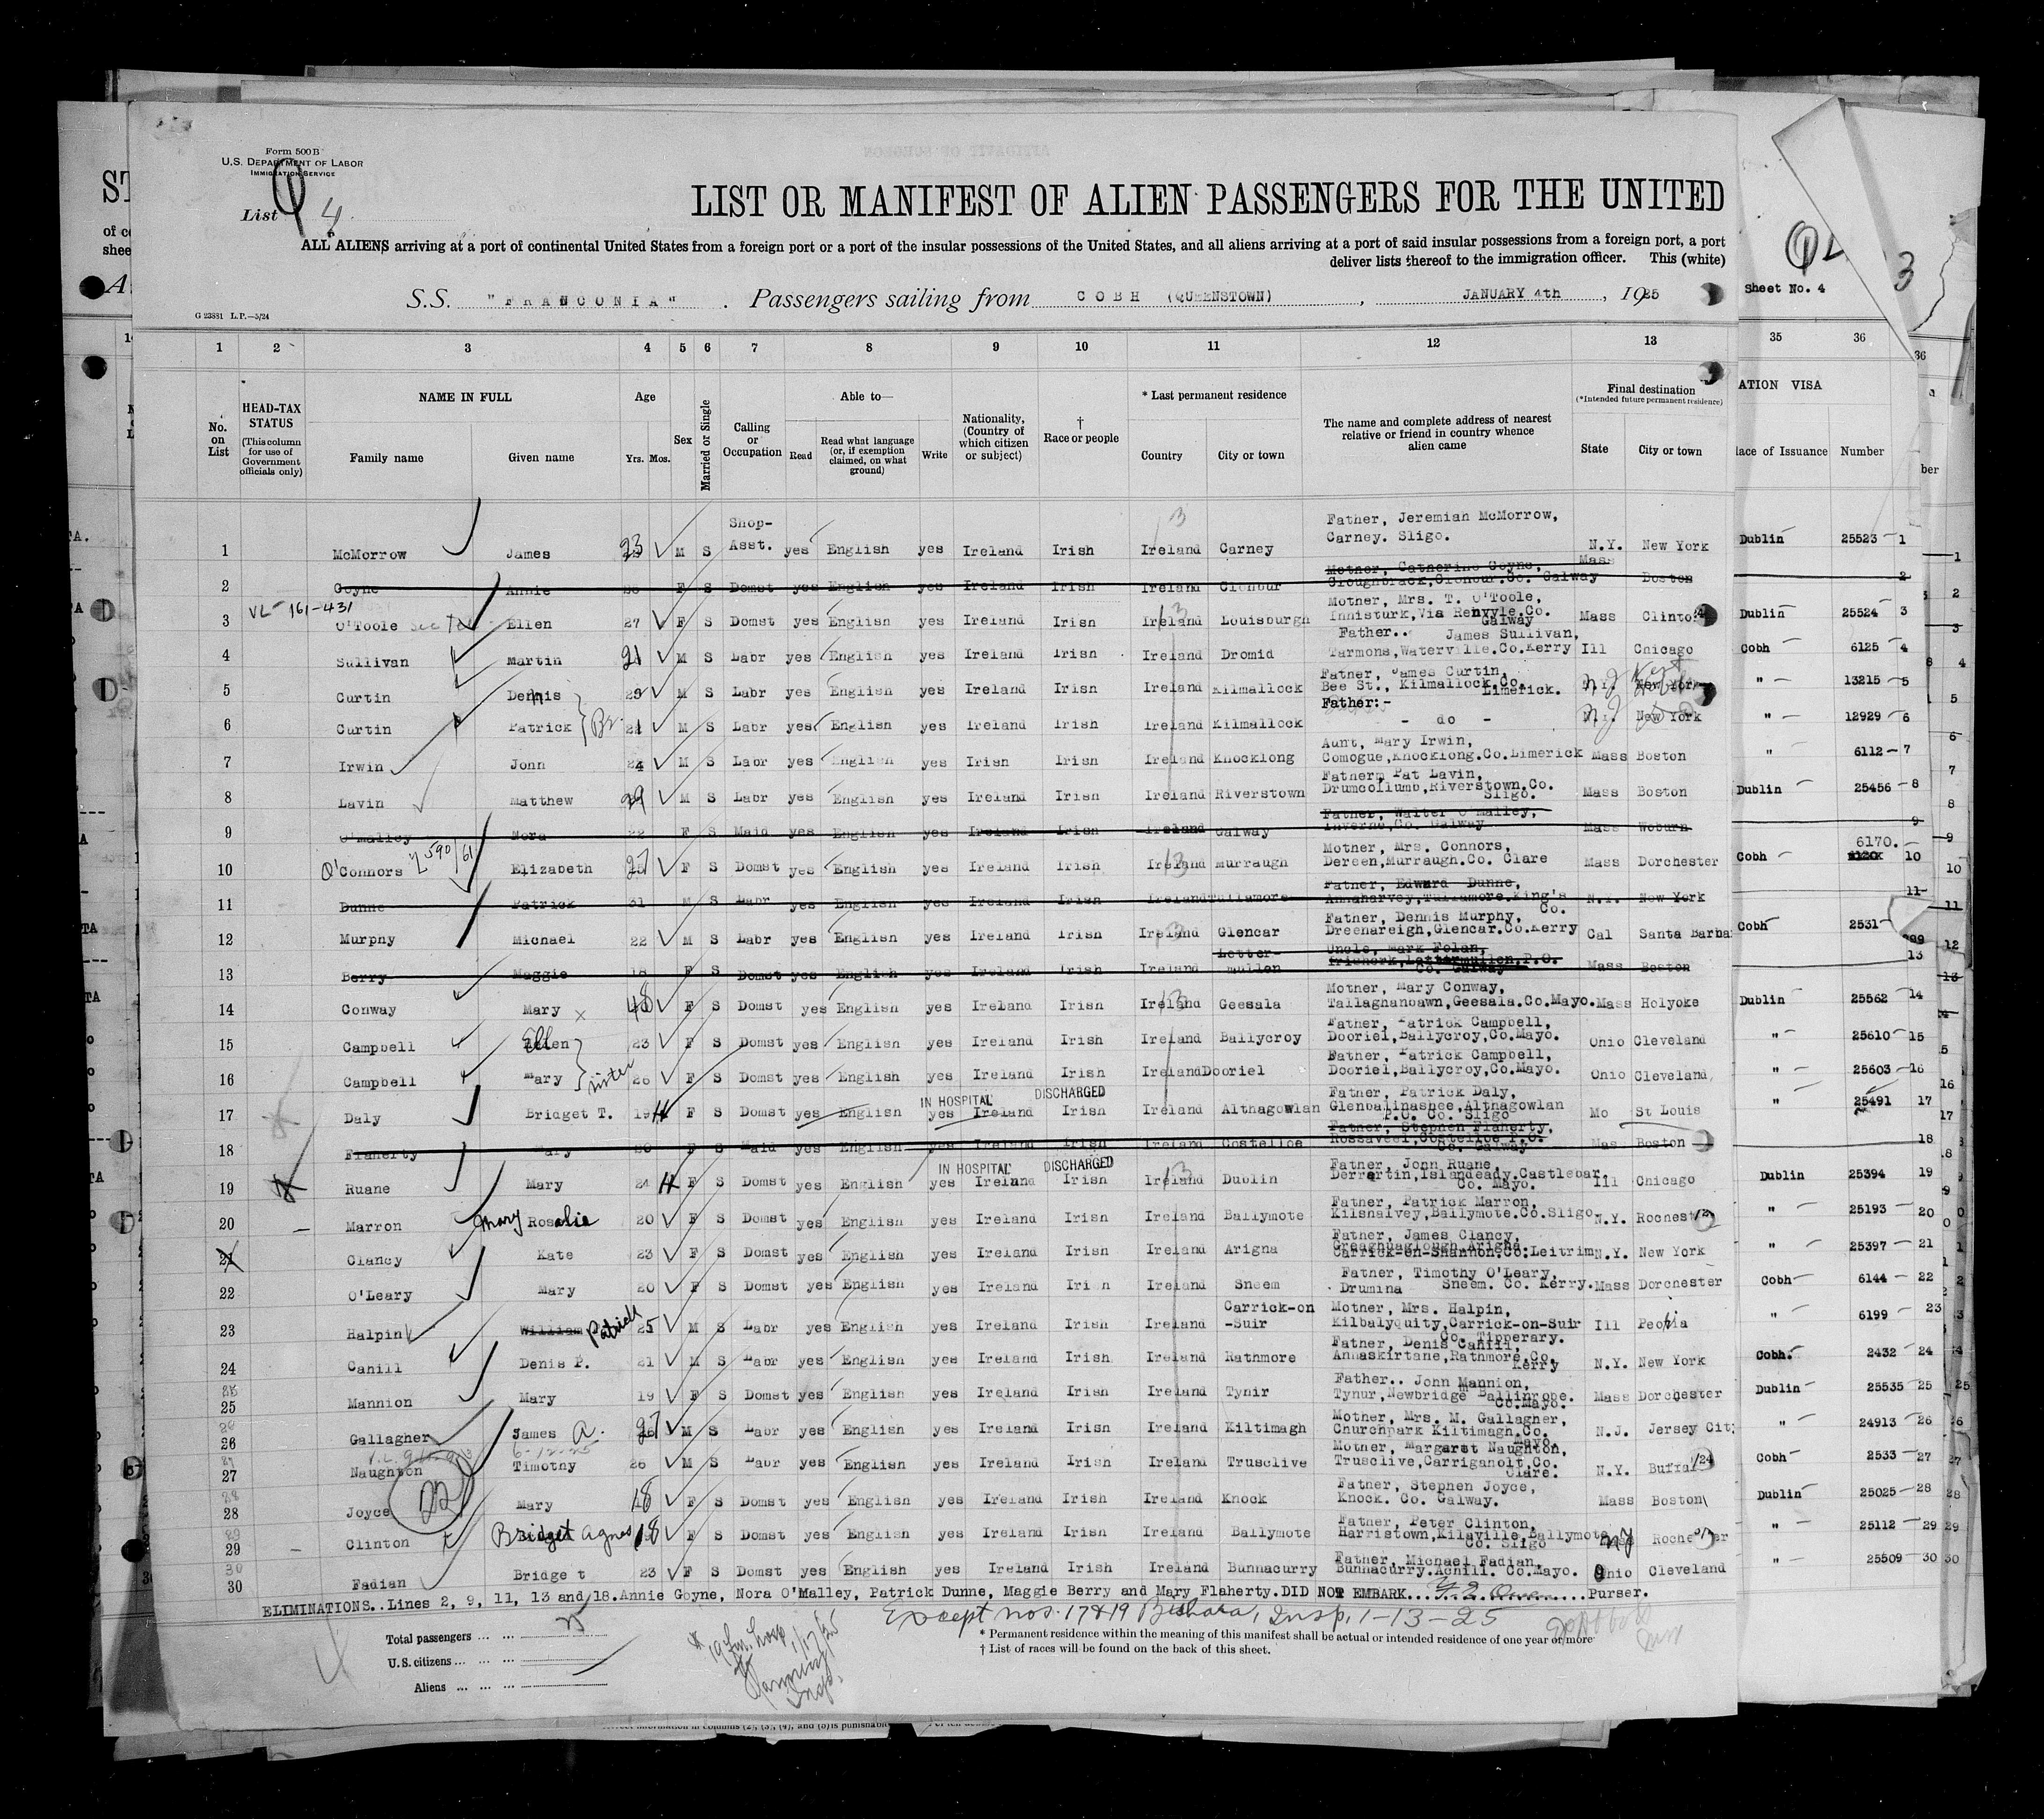 Form 500 B
U.S. DEPARTMENT OF LABOR
IMMIGRATION SERVICE
List 4
LIST OR MANIFEST OF ALIEN PASSENGERS FOR THE UNITED
ALL ALIENS arriving at a port of continental United States from a foreign port or a port of the insular possessions of the United States, and all aliens arriving at a port of said insular possessions from a foreign port, a port
deliver lists thereof to the immigration officer. This (white)
S.S. "FRANCONIA". Passengers sailing from COBH (QUEENSTOWN), JANUARY 4th, 1925
Sheet No. 4
G 23881 L.P.—5/24
1 2 3 4 5 6 7 8 9 10 11 12 13 35 36
No. on List
HEAD-TAX STATUS (This column for use of Government officials only)
NAME IN FULL
Family name Given name
Age Yrs. Mos.
Sex
Married or Single
Calling or Occupation
Able to—
Read Read what language (or, if exemption claimed, on what ground) Write
Nationality, (Country of which citizen or subject)
† Race or people
* Last permanent residence
Country City or town
The name and complete address of nearest relative or friend in country whence alien came
Final destination (*Intended future permanent residence)
State City or town
ATION VISA
lace of Issuance Number
1 McMorrow James 23 M S Shop-Asst. yes English yes Ireland Irish Ireland Carney Father, Jeremiah McMorrow, Carney. Sligo. N.Y. New York Dublin 25523 1
2 Goyne Annie F S Domst yes English yes Ireland Irish Ireland Clonbur Mother, Catherine Goyne, Cloughbrack, Clonbur. Co. Galway Mass Boston 2
VL- 161-431
3 O'Toole Ellen 27 F S Domst yes English yes Ireland Irish Ireland Louisburgh Mother, Mrs. T. O'Toole, Innisturk, Via Renvyle. Co. Galway Mass Clinton Dublin 25524 3
4 Sullivan Martin 21 M S Labr yes English yes Ireland Irish Ireland Dromid Father.. James Sullivan, Tarmons, Waterville. Co. Kerry Ill Chicago Cobh 6125 4
5 Curtin Dennis M S Labr yes English yes Ireland Irish Ireland Kilmallock Father, James Curtin, Bee St., Kilmallock. Co. Limerick. New York " 13215 5
6 Curtin Patrick Br. M S Labr yes English yes Ireland Irish Ireland Kilmallock Father:- - do - New York " 12929 6
7 Irwin John 24 M S Labr yes English yes Irish Irish Ireland Knocklong Aunt, Mary Irwin, Comogue, Knocklong. Co. Limerick Mass Boston " 6112 7
8 Lavin Matthew 29 M S Labr yes English yes Ireland Irish Ireland Riverstown Fatherm Pat Lavin, Drumcollumb, Riverstown. Co. Sligo. Mass Boston Dublin 25456 8
9 O'Malley Nora 22 F S Maid yes English yes Ireland Irish Ireland Galway Father, Walter O'Malley, Inverne, Co. Galway Mass Woburn 9
10 O'Connors Elizabeth 27 F S Domst yes English yes Ireland Irish Ireland Murraugh Mother, Mrs. Connors, Dereen, Murraugh. Co. Clare Mass Dorchester Cobh 6170. 10
11 Dunne Patrick 31 M S Labr yes English yes Ireland Irish Ireland Tullamore Father, Edward Dunne, Annaharvey, Tullamore. King's Co. N.Y. New York 11
12 Murphy Michael 22 M S Labr yes English yes Ireland Irish Ireland Glencar Father, Dennis Murphy, Dreenareigh, Glencar. Co. Kerry Cal Santa Barba Cobh 2531 12
13 Berry Maggie 18 F S Domst yes English yes Ireland Irish Ireland Letter-mullen Uncle, Mark Folan, Lettermullen, P.O. Co. Galway Mass Boston 13
14 Conway Mary 18 F S Domst yes English yes Ireland Irish Ireland Geesala Mother, Mary Conway, Tallaghanbawn, Geesala. Co. Mayo. Mass Holyoke Dublin 25562 14
15 Campbell Ellen 23 F S Domst yes English yes Ireland Irish Ireland Ballycroy Father, Patrick Campbell, Dooriel, Ballycroy, Co. Mayo. Ohio Cleveland " 25610 15
16 Campbell Mary sister 26 F S Domst yes English yes Ireland Irish Ireland Dooriel Father, Patrick Campbell, Dooriel, Ballycroy, Co. Mayo. Ohio Cleveland " 25603 16
IN HOSPITAL DISCHARGED
17 Daly Bridget T. 19 F S Domst yes English yes Ireland Irish Ireland Althagowlan Father, Patrick Daly, Glenballinashee, Althagowlan P.O. Co. Sligo Mo St Louis " 25491 17
18 Flaherty Mary 20 F S Maid yes English yes Ireland Irish Ireland Costelloe Father, Stephen Flaherty, Rossaveel, Costelloe P.O. Co. Galway Mas. Boston 18
IN HOSPITAL DISCHARGED
19 Ruane Mary 24 F S Domst yes English yes Ireland Irish Ireland Dublin Father, John Ruane, Derrartin, Islandeady, Castlebar. Co. Mayo. Ill Chicago Dublin 25394 19
20 Marron Mary Rosalie 20 F S Domst yes English yes Ireland Irish Ireland Ballymote Father, Patrick Marron, Kilshalvey, Ballymote. Co. Sligo N.Y. Rochest " 25193 20
21 Clancy Kate 23 F S Domst yes English yes Ireland Irish Ireland Arigna Father, James Clancy, Carrick-on-Shannon, Co. Leitrim N.Y. New York " 25397 21
22 O'Leary Mary 20 F S Domst yes English yes Ireland Irish Ireland Sneem Father, Timothy O'Leary, Drumina Sneem. Co. Kerry. Mass Dorchester Cobh 6144 22
23 Halpin William Patrick 25 M S Labr yes English yes Ireland Irish Ireland Carrick-on-Suir Mother, Mrs. Halpin, Kilbalyquity, Carrick-on-Suir Co. Tipperary. Ill Peoria " 6199 23
24 Cahill Denis P. 21 M S Labr yes English yes Ireland Irish Ireland Rathmore Father, Denis Cahill, Annaskirtane, Rathmore. Co. Kerry N.Y. New York Cobh. 2432 24
25 Mannion Mary 19 F S Domst yes English yes Ireland Irish Ireland Tynir Father.. John Mannion, Tynur, Newbridge Ballinrobe. Co. Mayo. Mass Dorchester Dublin 25535 25
26 Gallagher James A. 27 M S Labr yes English yes Ireland Irish Ireland Kiltimagh Mother, Mrs. M. Gallagher, Churchpark Kiltimagh. Co. Mayo. N.J. Jersey City " 24913 26
6-12-25
27 Naughton Timothy 26 M S Labr yes English yes Ireland Irish Ireland Trusclive Mother, Margaret Naughton, Trusclive, Carriganolt, Co. Clare. N.Y. Buffal Cobh 2533 27
28 Joyce Mary 18 F S Domst yes English yes Ireland Irish Ireland Knock Father, Stephen Joyce, Knock. Co. Galway. Mass Boston Dublin 25025 28
29 Clinton Bridget Agnes 18 F S Domst yes English yes Ireland Irish Ireland Ballymote Father, Peter Clinton, Harristown, Kilaville, Ballymote Co. Sligo NY Rochester " 25112 29
30 Fadian Bridget 23 F S Domst yes English yes Ireland Irish Ireland Bunnacurry Father, Michael Fadian, Bunnacurry. Achill. Co. Mayo. Ohio Cleveland " 25509 30
ELIMINATIONS.. Lines 2, 9, 11, 13 and 18. Annie Goyne, Nora O'Malley, Patrick Dunne, Maggie Berry and Mary Flaherty. DID NOT EMBARK.... Purser.
Except nos. 17 & 19 Bishara, Insp. 1-13-25
Total passengers ... ... 25
U.S. citizens ... ... ...
Aliens ... ... ...
* Permanent residence within the meaning of this manifest shall be actual or intended residence of one year or more
† List of races will be found on the back of this sheet.